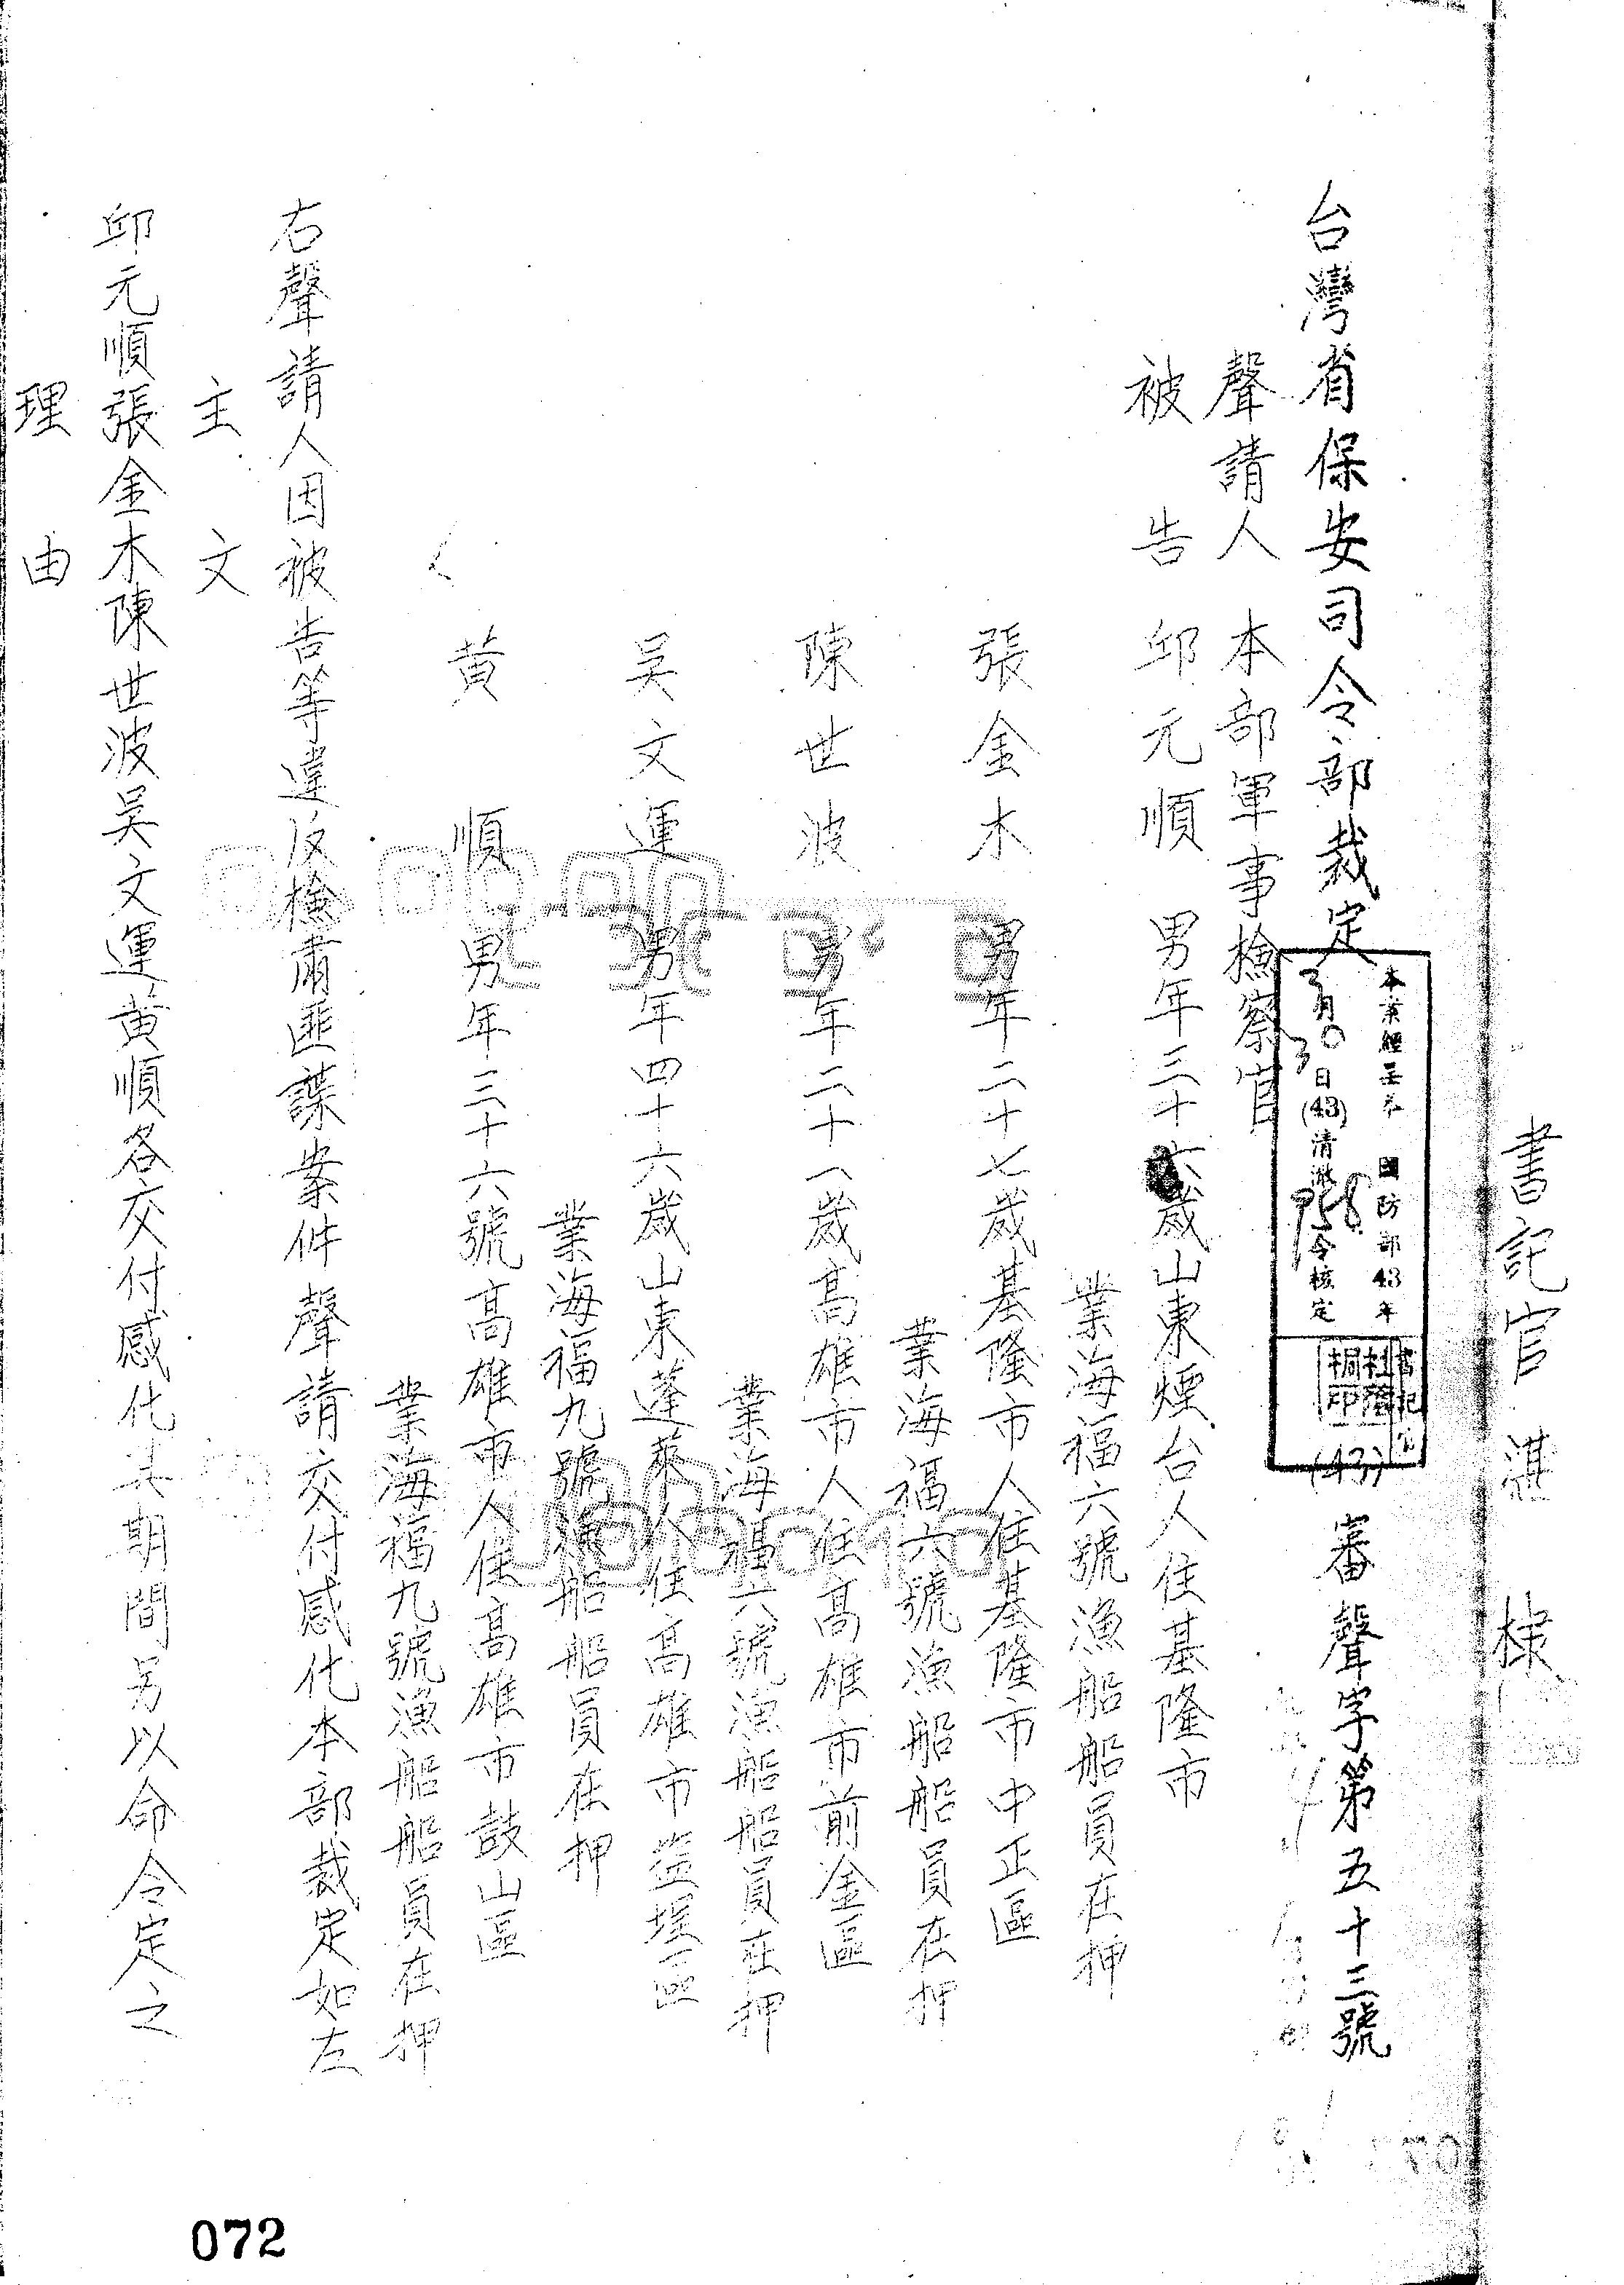 書記官 湛
台灣省保安司令部裁定
(43)審聲字第五十三號
本案經呈奉 國防部43年
3月30日(43)清澈958令核定
書記官
聲請人 本部軍事檢察官
被告 邱元順 男年三十六歲山東煙台人住基隆市
業海福六號漁船船員在押
張金木 男年二十七歲基隆市人住基隆市中正區
業海福六號漁船船員在押
陳世波 男年二十八歲高雄市人住高雄市前金區
業海福六號漁船船員在押
吴文運 男年四十六歲山東蓬萊人住高雄市塩埕區
業海福九號漁船船員在押
黃順 男年三十六號高雄市人住高雄市鼓山區
業海福九號漁船船員在押
右聲請人因被告等違反檢肅匪諜案件聲請交付感化本部裁定如左
主文
邱元順張金木陳世波吴文運黃順各交付感化其期間另以命令定之
理由
072